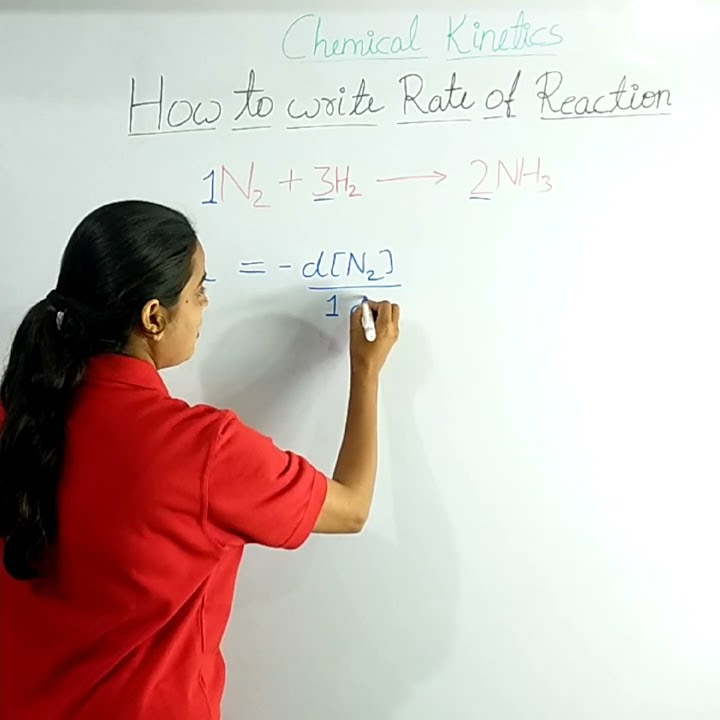 Chemical Kinetics
How to write Rate of Reaction
1N₂ + 3H₂ ⟶ 2NH₃
= - d[N₂]
1